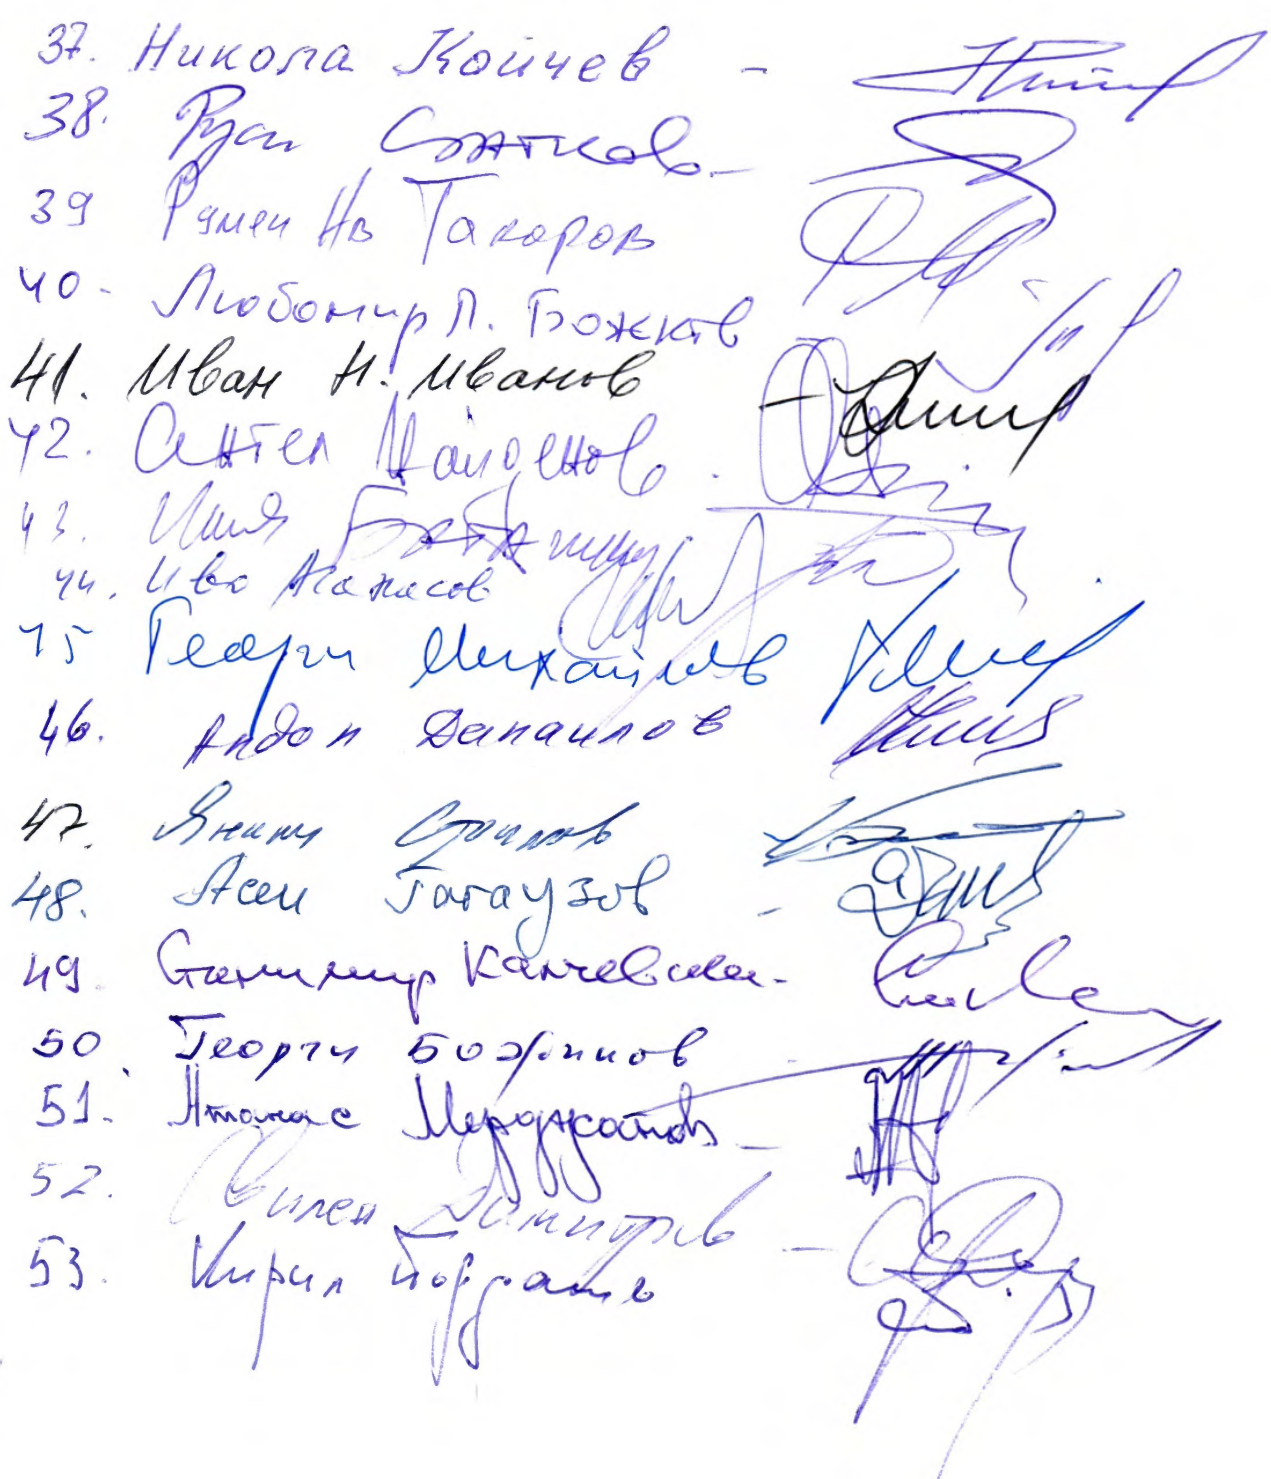 37. Никола Койчев -
38. Руси Статков -
39 Румен Ив Такоров
40. Любомир П. Божков
41. Иван Н. Иванов -
42. Ангел Найденов -
43. Илия
44. Иво Атанасов
45 Георги Михайлов
46. Андон Данаилов
47. Янаки Стоилов
48. Асен Гагаузов -
49. Станимир
50. Георги Божинов
51. Атанас Мерджанов -
52. Димитров -
53. Кирил